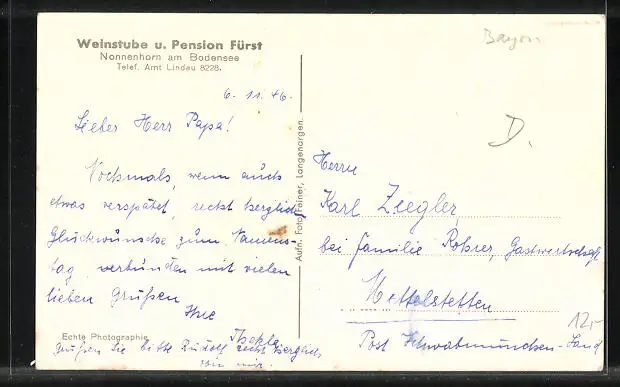 Weinstube u. Pension Fürst
Nonnenhorn am Bodensee
Telef. Amt Lindau 8228.
6. 11. 46.
Lieber Herr Papa!
Nochmals, wenn auch
etwas verspätet, recht herzliche
Glückwünsche zum Namens-
tag, verbunden mit vielen
lieben Grüßen
Ihre
Thekla
Echte Photographie
Grüßen Sie bitte Rudolf recht herzlich
von mir.
Aufn. Foto Feiner, Langenargen.
Bayern
D.
Herrn
Karl Ziegler
bei Familie Rohrer,
Hattelstetten
Post Schwabmünchen-Land
12,-